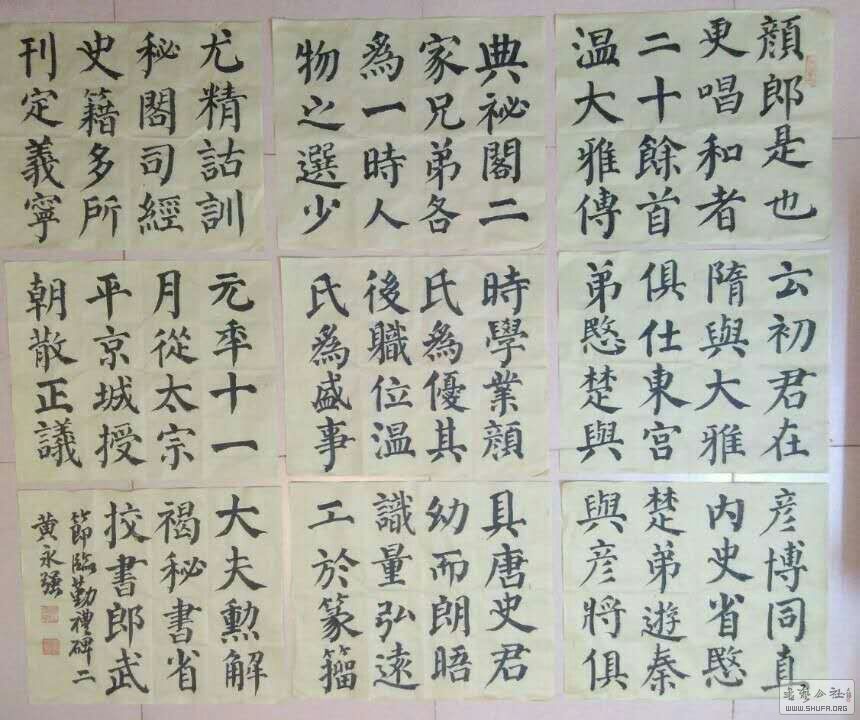 顔郎是也
更唱和者
二十餘首
温大雅傳
云初君在
隋與大雅
俱仕東宮
弟愍楚與
彦博同直
内史省愍
楚弟遊秦
與彦將俱
典祕閣二
家兄弟各
爲一時人
物之選少
時學業顔
氏爲優其
後職位温
氏爲盛事
具唐史君
幼而朗晤
識量弘遠
工於篆籀
尤精詁訓
秘閣司經
史籍多所
刊定義寧
元年十一
月從太宗
平京城授
朝散正議
大夫勲解
褐秘書省
挍書郎武
節臨勤禮碑二
黄永强
WWW.SHUFA.ORG